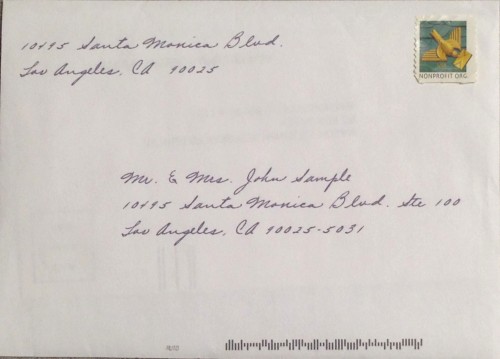 10495 Santa Monica Blvd.
Los Angeles, CA 90025
NONPROFIT ORG.
Mr. & Mrs. John Sample
10495 Santa Monica Blvd. Ste 100
Los Angeles, CA 90025-5031